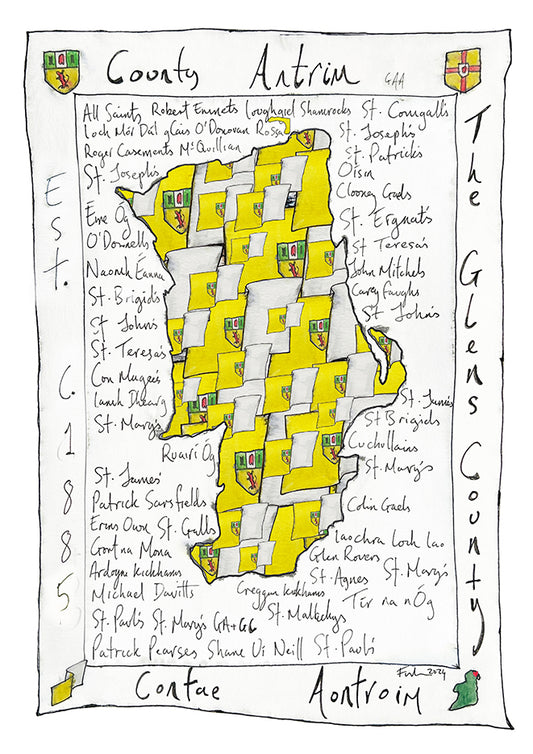 County Antrim GAA
All Saints Robert Emmets Loughgiel Shamrocks St. Comgall's
Loch Mór Dál gCais O'Donovan Rossa
St. Joseph's
Roger Casements McQuillan
St. Patrick's
St. Joseph's
Oisin
Clooney Gaels
Éire Óg
St. Ergnat's
O'Donnells
St Teresa's
Naomh Éanna
John Mitchels
St. Brigids
Carey Faughs
St. John's
St John's
St. Teresas
Con Magees
Lamh Dhearg
St. James
St. Mary's
St Brigids
Ruairí Óg
Cuchullains
St. Mary's
St. James'
Patrick Sarsfields
Colin Gaels
Erins Own St. Galls
Laochra Loch Lao
Gort na Mona
Glen Rovers
Ardoyne Kickhams
St. Agnes St. Mary's
Michael Davitts
Creggan Kickhams
Tír na nÓg
St. Paul's St. Mary's GA+GC
St. Malachys
Patrick Pearses Shane Uí Neill St. Paul's
2024
Contae Aontroim
Est. C. 1885
The Glens County